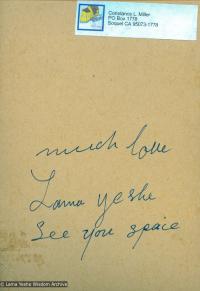 Constance L. Miller
PO Box 1778
Soquel CA 95073-1778
much love
Lama Yeshe
See you space
© Lama Yeshe Wisdom Archive